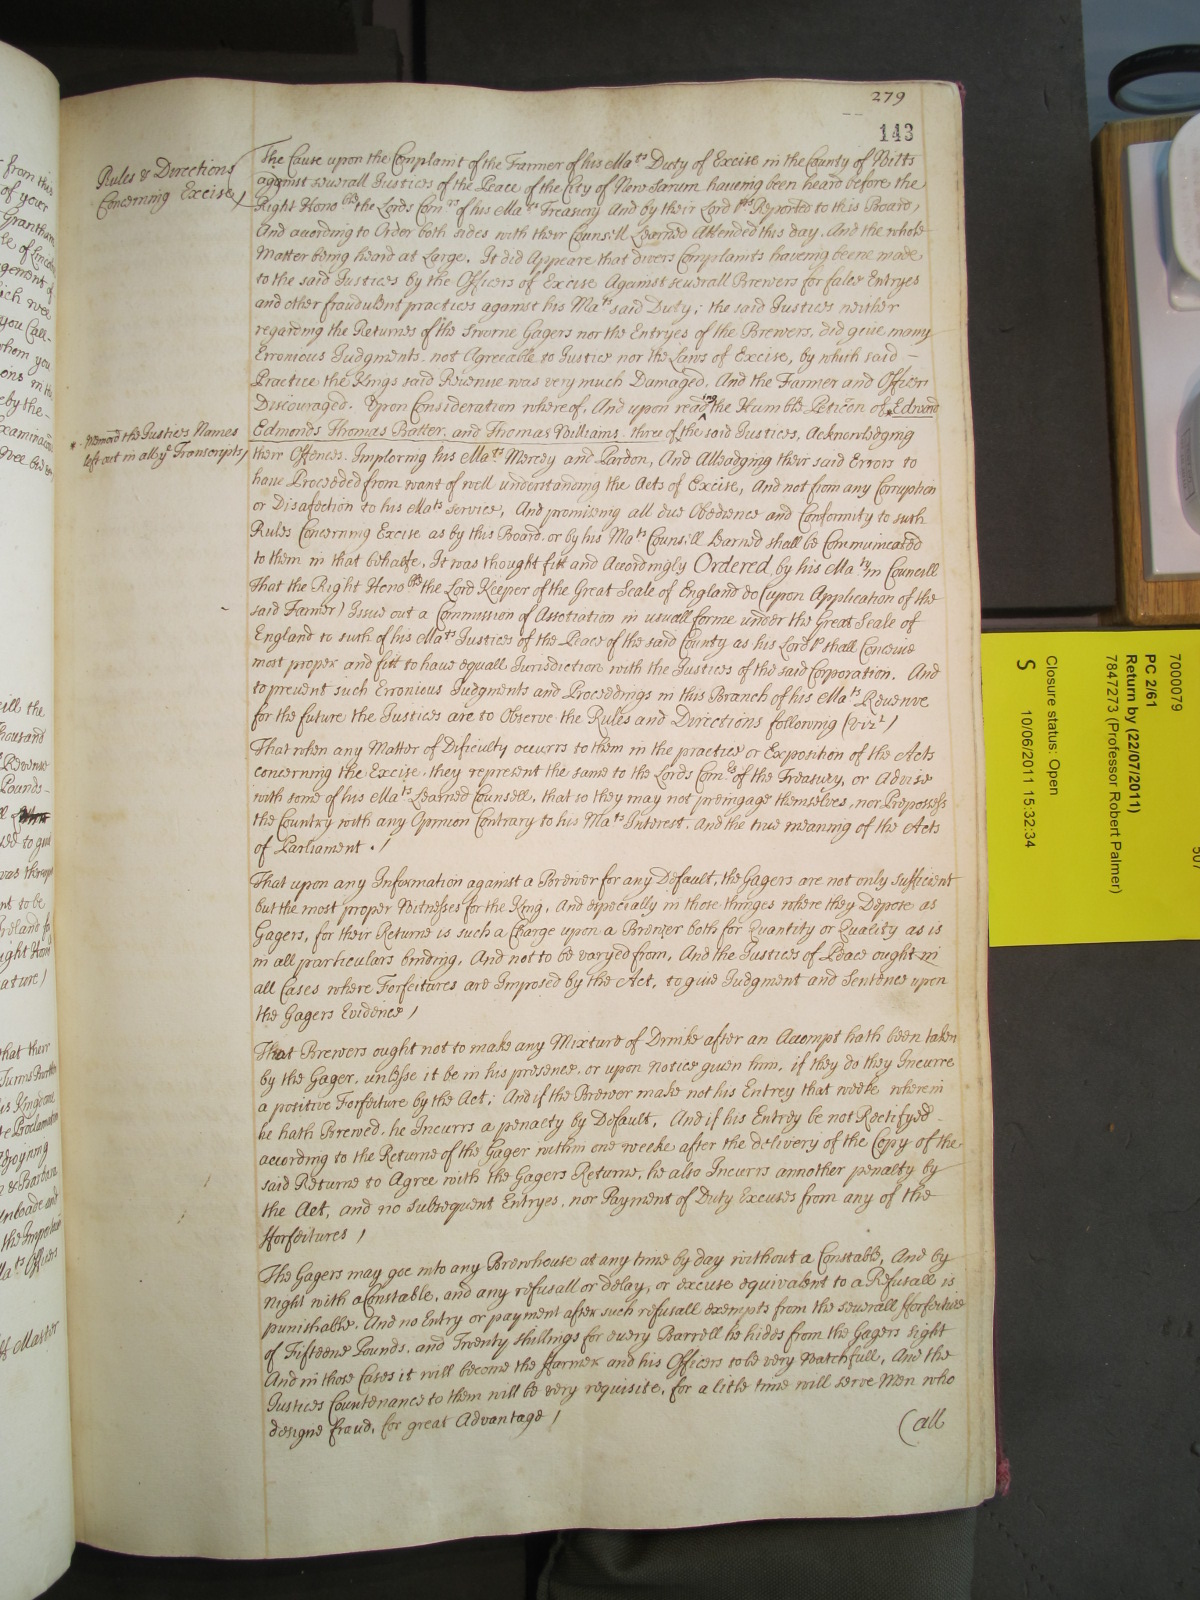 279
143
Rules & Directions
Concerning Excise /
The Cause upon the Complaint of the Farmer of his Mats Duty of Excise in the County of Wilts
against severall Justices of the Peace of the City of New Sarum haveing been heard before the
Right Honoble the Lords Comrs of his Mats Treasury And by their Lordps Reported to this Board,
And according to Order both sides with their Counsill Learned Attended this day. And the whole
Matter being heard at Large. It did Appeare that divers Complaints haveing beene made
to the said Justices by the Officers of Excise Against severall Brewers for false Entryes
and other fraudulent practices against his Mats said Duty; the said Justices neither
regarding the Returnes of the Sworne Gagers nor the Entryes of the Brewers, did give many
Erronious Judgments not Agreeable to Justice nor the Laws of Excise, by which said –
Practice the Kings said Revenue was very much Damaged, And the Farmer and Officer
Discouraged. Upon Consideration whereof, And upon reading the Humble Peticon of *Edward
Edmonds Thomas Batter, and Thomas Williams three of the said Justices, Acknowledging
* Memord the Justices Names
left out in all ye Transcripts /
their Offences. Imploring his Mats Mercey and Pardon, And Alleadging their said Errors to
have Proceeded from want of well understanding the Acts of Excise, And not from any Corruption
or Disafection to his Mats service, And promising all due Obedience and Conformity to such
Rules Concerning Excise as by this Board or by his Mats Counsill Learned shall be Communicated
to them in that behalfe, It was thought fitt and Accordingly Ordered by his Maty in Councill
That the Right Honoble the Lord Keeper of the Great Seale of England do (upon Application of the
said Farmer) Issue out a Commission of Assotiation in usuall forme under the Great Seale of
England to such of his Mats Justices of the Peace of the said County as his Lordp shall Conceive
most proper and fitt to have equall Jurisdiction with the Justices of the said Corporation. And
to prevent such Erronious Judgments and Proceedings in this Branch of his Mats Revenue
for the future the Justices are to Observe the Rules and Directions following (vizt)
That when any Matter of Dificulty occurrs to them in the practice or Exposition of the Acts
concerning the Excise, they represent the same to the Lords Comrs of the Treasury, or Advise
with some of his Mats Learned Counsell, that so they may not preingage themselves, nor Prepossess
the Country with any Opinion Contrary to his Mats Interest. And the true meaning of the Acts
of Parliament . /
That upon any Information against a Brewer for any Default, the Gagers are not only sufficient
but the most proper Witnesses for the King, And especially in those things where they Depose as
Gagers, for their Returne is such a Charge upon a Brewer both for Quantity or Quality as is
in all particulars binding, And not to be varyed from, And the Justices of Peace ought in
all Cases where Forfeitures are Imposed by the Act, to give Judgment and Sentence upon
the Gagers Evidence /
That Brewers ought not to make any Mixture of Drinke after an Accompt hath been taken
by the Gager, unlesse it be in his presence, or upon Notice given him, if they do they Incurre
a positive Forfeiture by the Act; And if the Brewer make not his Entrey that weeke wherein
he hath Brewed, he Incurrs a penalty by Default, And if his Entrey be not Rectifyed
according to the Returne of the Gager within one weeke after the delivery of the Copy of the
said Returne to Agree with the Gagers Returne, he also Incurrs annother penalty by
the Act, and no subsequent Entryes, nor Payment of Duty Excuses from any of the
fforfeitures /
The Gagers may goe into any Brewhouse at any time by day without a Constable, And by
Night with a Constable, and any refusall or delay, or excuse equivalent to a Refusall is
punishable. And no Entry or payment after such refusall exempts from the severall fforfeitures
of Fifteene Pounds, and Twenty shillings for every Barrell he hides from the Gagers sight
And in those Cases it will become the ffarmer and his Officers to be very Watchfull, And the
Justices Countenance to them will be very requisite, for a litle time will serve Men who
designe fraud, for great Advantage /
(all
7000079
PC 2/61
Return by (22/07/2011)
7847273 (Professor Robert Palmer)
Closure status: Open
S 10/06/2011 15:32:34